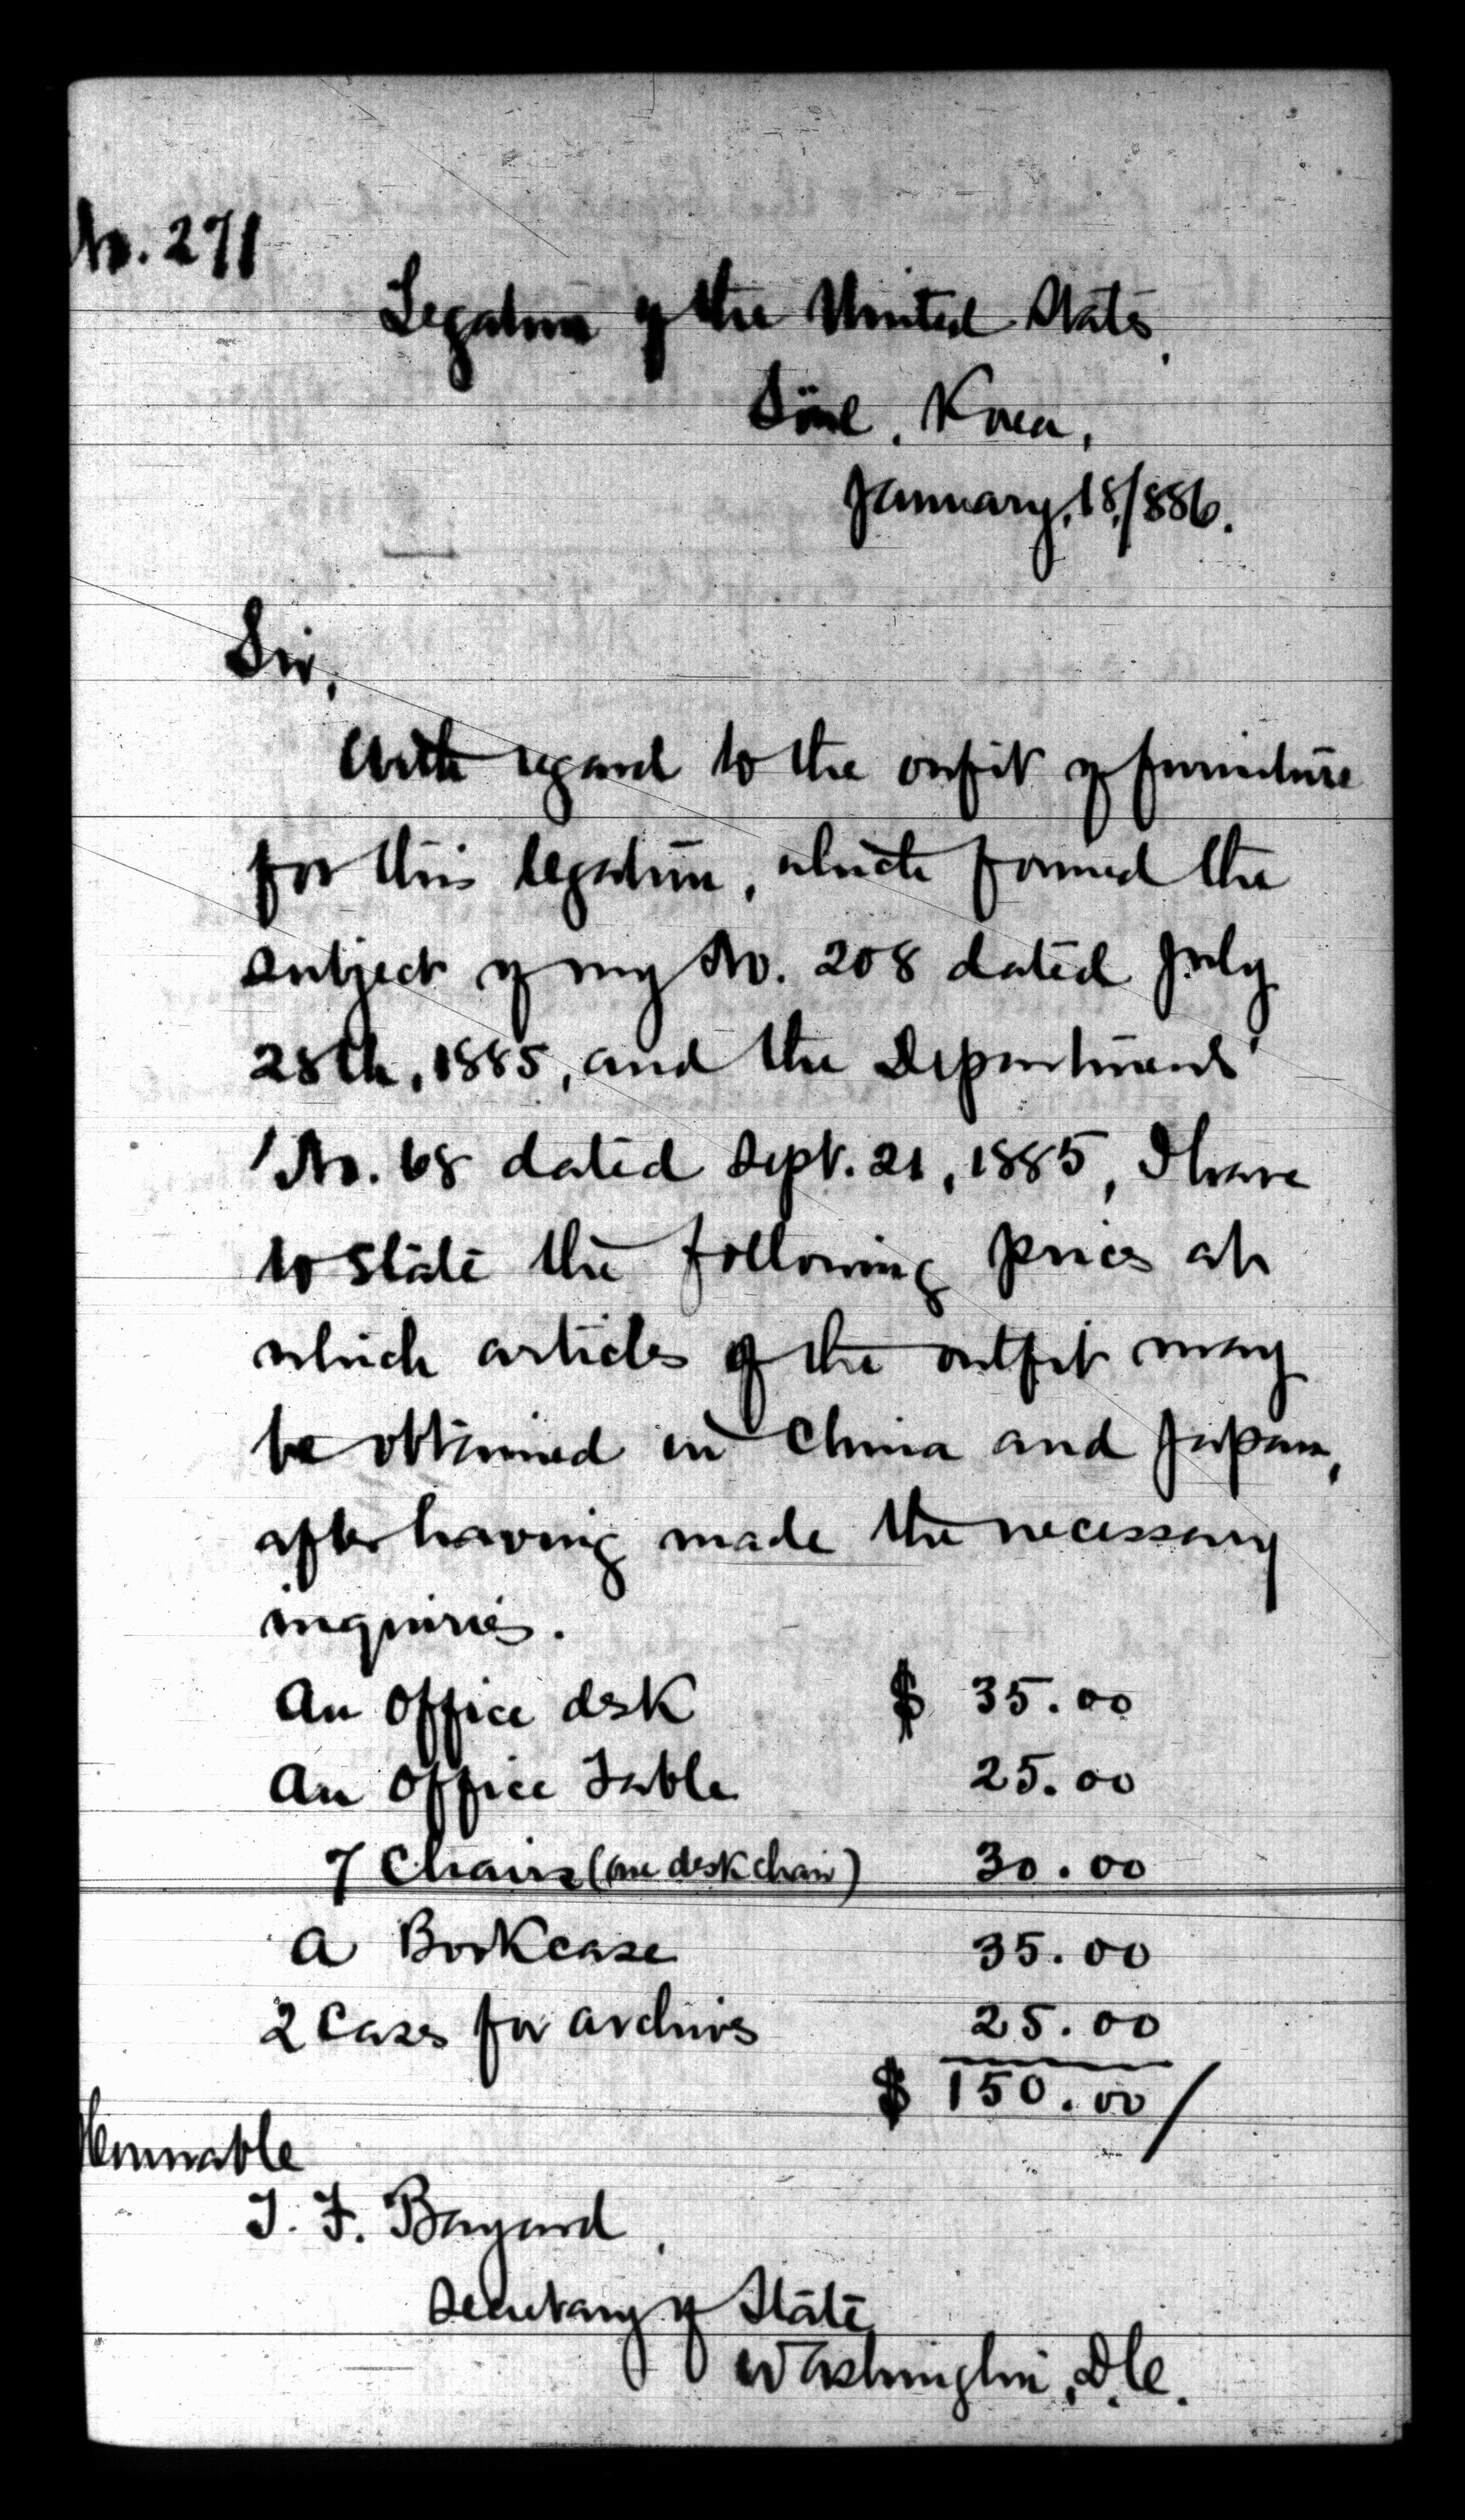 No. 271
Legation of the United States,
Söul, Korea,
January, 18, 1886.
Sir,
With regard to the outfit of furniture
for this legation, which formed the
subject of my No. 208 dated July
28th, 1885, and the Department's
No. 68 dated Sept. 21, 1885, I have
to state the following prices at
which articles of the outfit may
be obtained in China and Japan,
after having made the necessary
inquiries.
An Office desk $ 35.00
An Office Table 25.00
7 Chairs (one desk chair) 30.00
A Bookcase 35.00
2 Cases for archives 25.00
$ 150.00/
Honorable
T. F. Bayard,
Secretary of State
Washington, D.C.